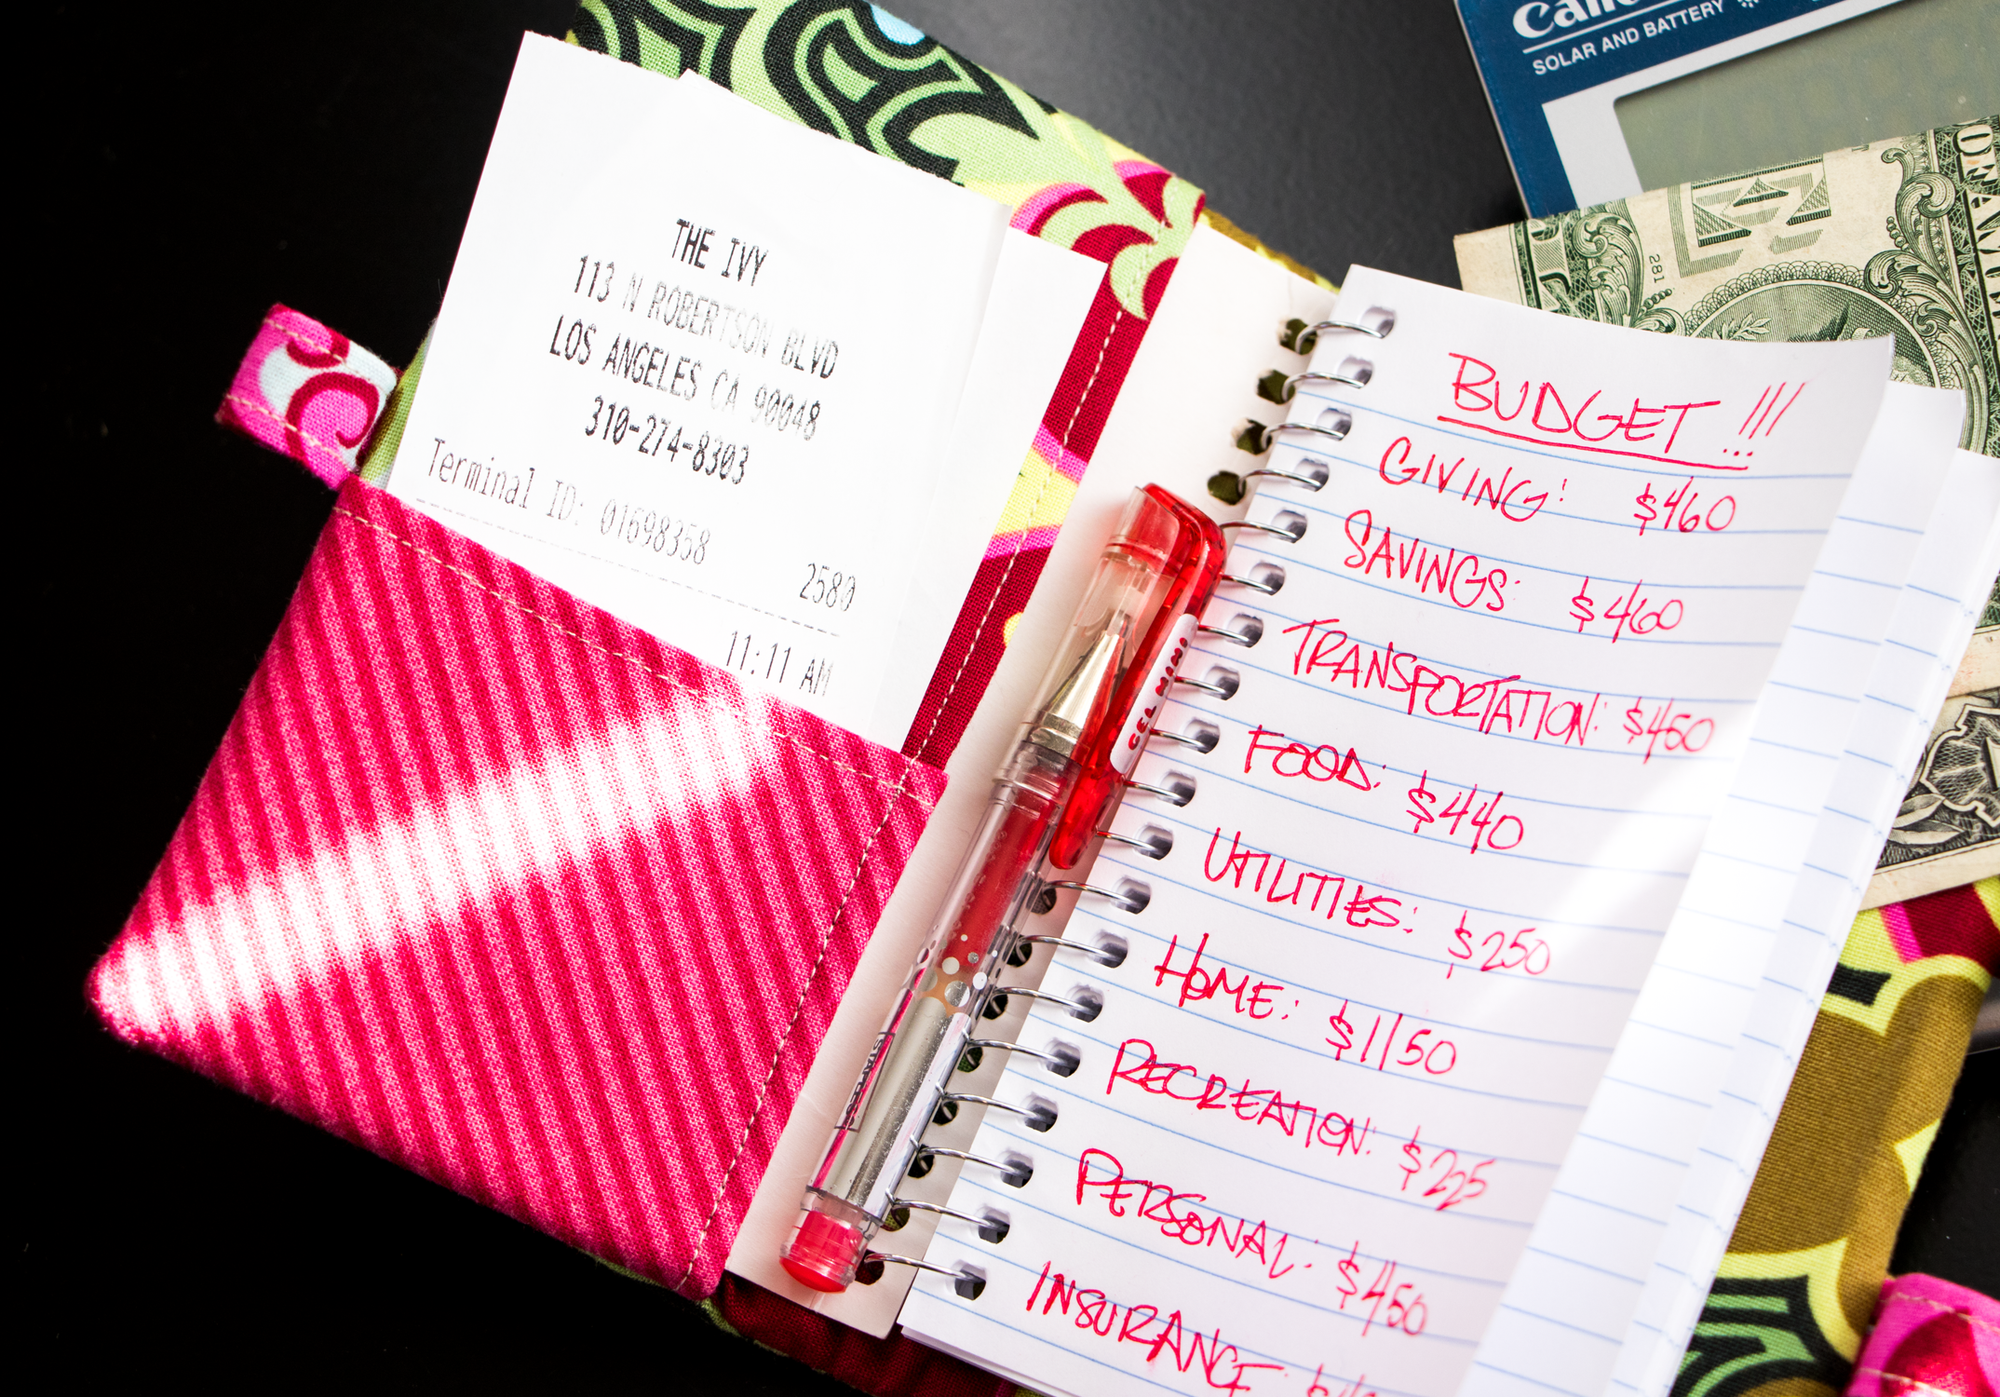 THE IVY
113 N ROBERTSON BLVD
LOS ANGELES CA 90048
310-274-8303
Terminal ID: 01698358
2580
11:11 AM
GEL MINI
BUDGET !!!
GIVING: $460
SAVINGS: $460
TRANSPORTATION: $450
FOOD: $440
UTILITIES: $250
HOME: $1150
RECREATION: $225
PERSONAL: $450
INSURANCE
SOLAR AND BATTERY
281